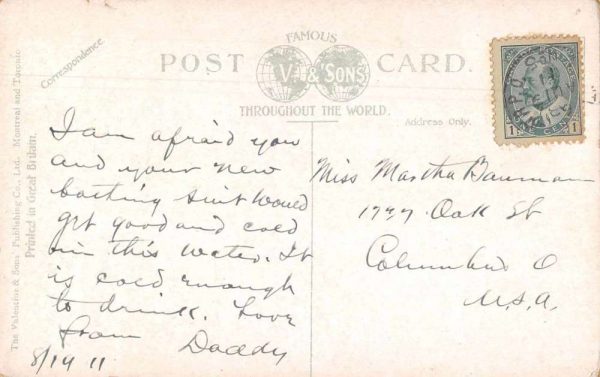 FAMOUS
POST CARD.
V. & SONS
THROUGHOUT THE WORLD.
Correspondence.
Address Only.
The Valentine & Sons Publishing Co., Ltd. Montreal and Toronto
Printed in Great Britain.
I am afraid you
and your new
bathing suit would
get good and cold
in this water. It
is cold enough
to drink. Love
from Daddy
8/14 11
Miss Martha Bauman
Oak St
Columbus O
U.S.A.
1 CENT 1